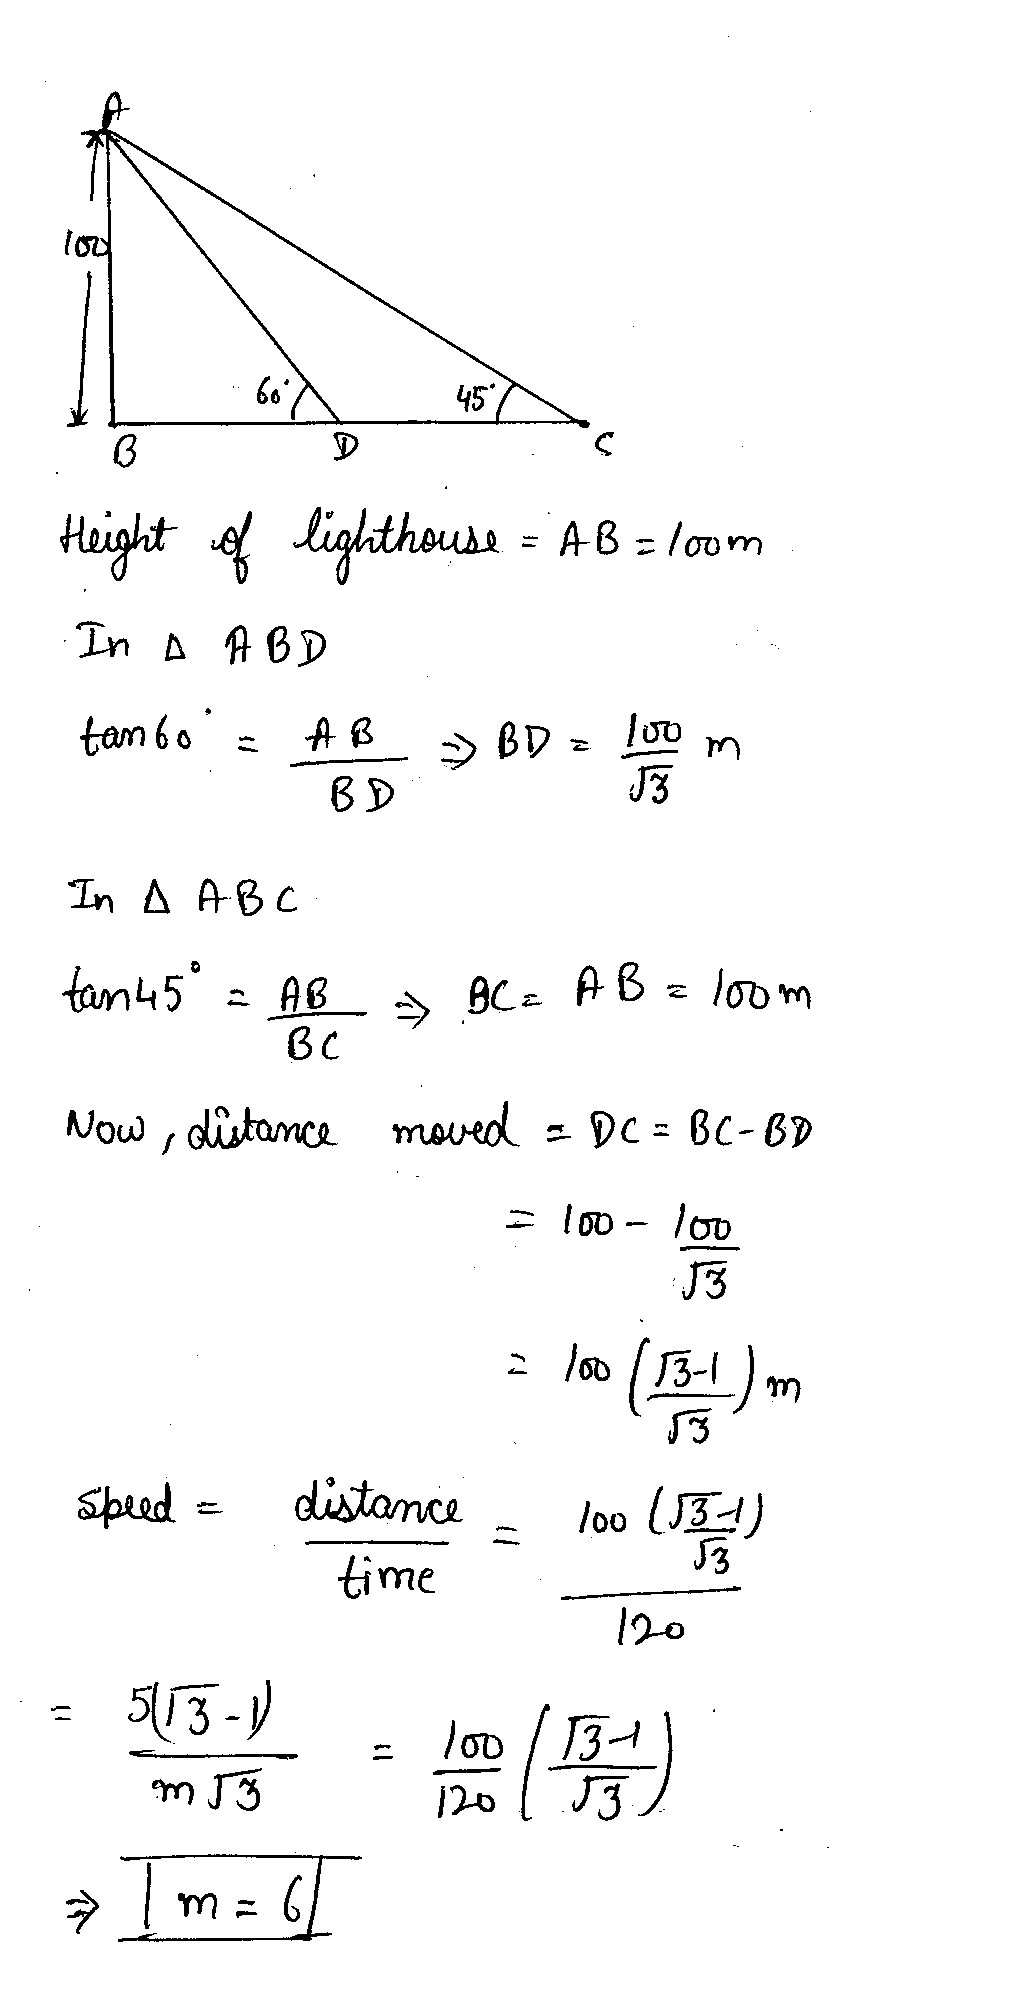 A
100
60° 45°
B D C
Height of lighthouse = AB = 100m
In Δ ABD
tan60° = AB/BD ⇒ BD = 100/√3 m
In Δ ABC
tan45° = AB/BC ⇒ BC = AB = 100m
Now, distance moved = DC = BC-BD
= 100 - 100/√3
= 100 (√3-1/√3) m
Speed = distance/time = 100 (√3-1/√3)/120
= 5(√3-1)/m√3 = 100/120 (√3-1/√3)
⇒ m = 6